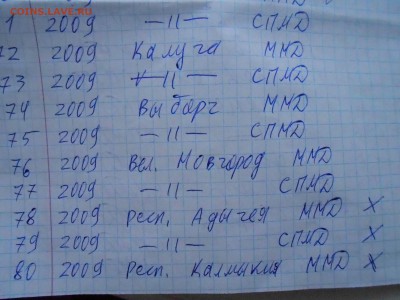 COINS.LAVE.RU
1 2009 —〃— СПМД
72 2009 Калуга ММД
73 2009 —〃— СПМД
74 2009 Выборг ММД
75 2009 —〃— СПМД
76 2009 Вел. Новгород ММД
77 2009 —〃— СПМД
78 2009 респ. Адыгея ММД X
79 2009 —〃— СПМД X
80 2009 Респ. Калмыкия ММД X